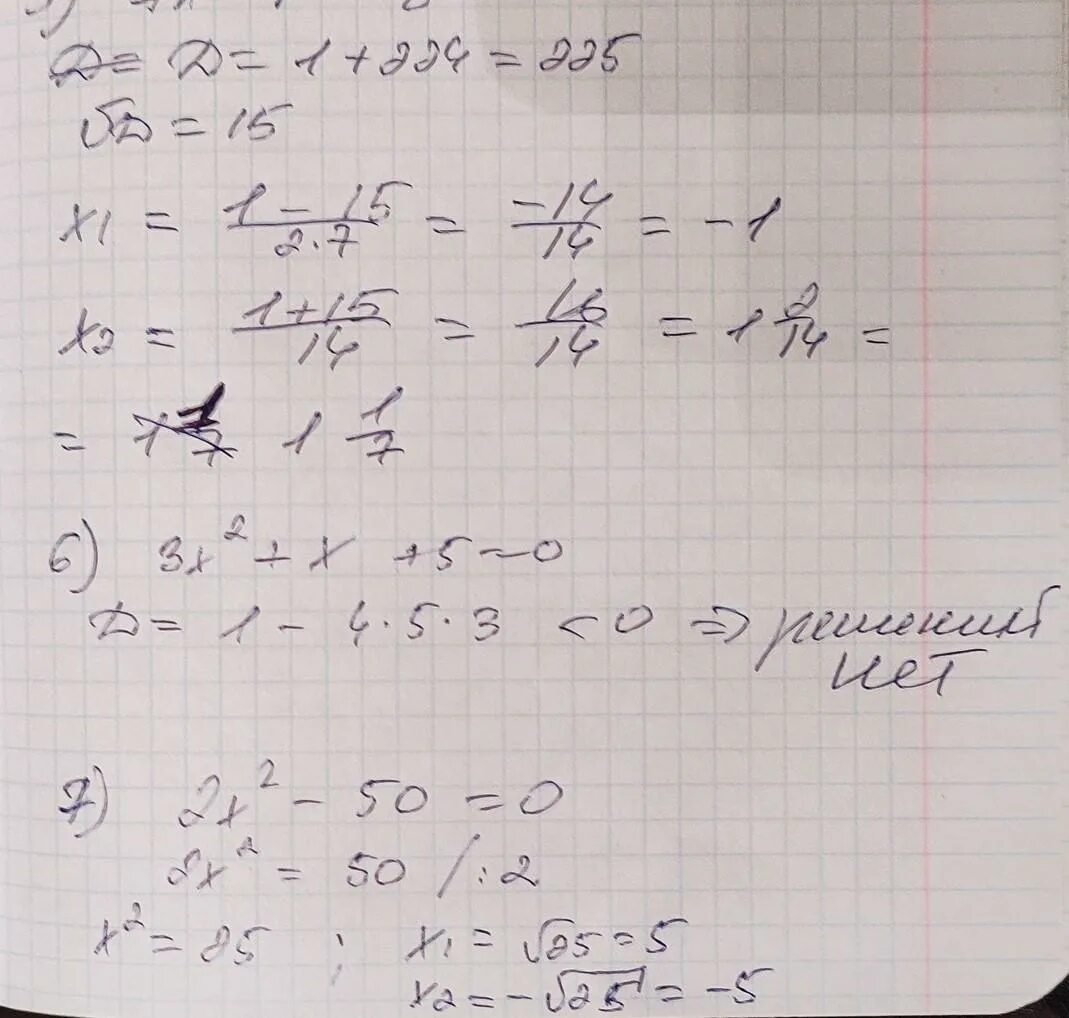 D = D = 1 + 224 = 225
√D = 15
x1 = (1 - 15)/(2·7) = -14/14 = -1
x2 = (1+15)/14 = 16/14 = 1 2/14 =
= 1 1/7 1 1/7
6) 3x² + x + 5 = 0
D = 1 - 4·5·3 < 0 ⇒ решений
нет
7) 2x² - 50 = 0
2x² = 50 /:2
x² = 25 ; x1 = √25 = 5
x2 = -√25 = -5